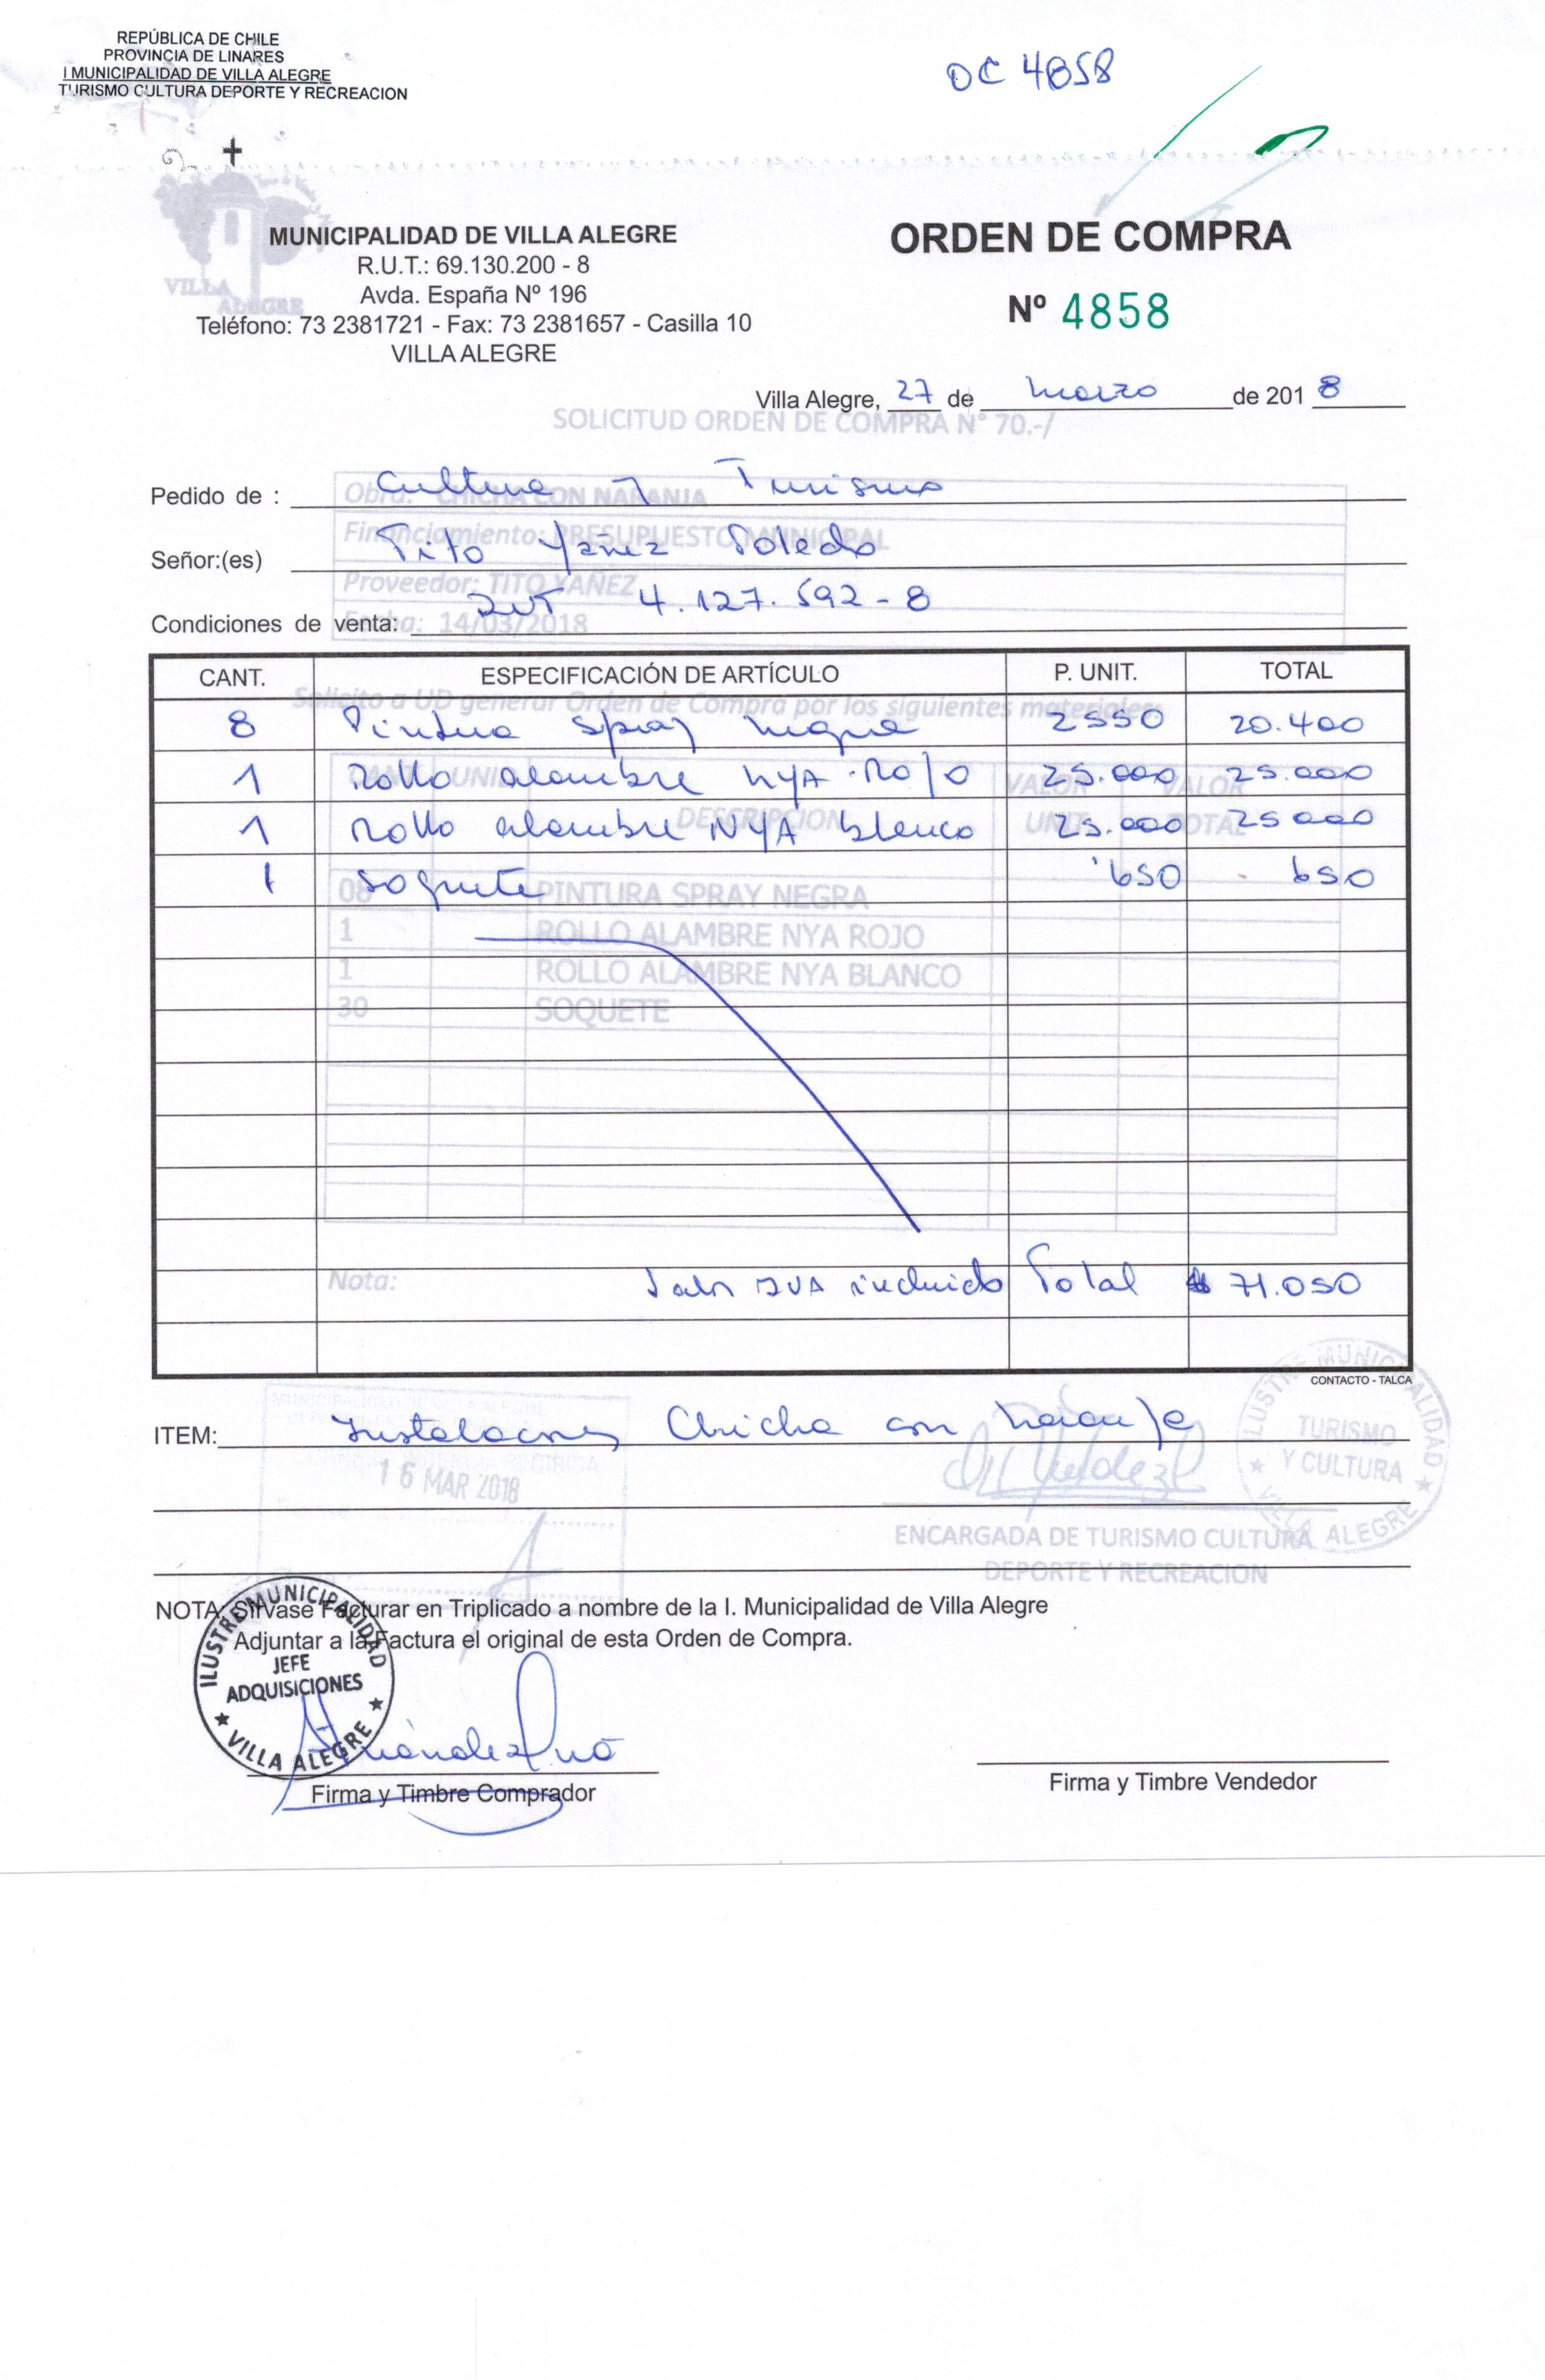 REPÚBLICA DE CHILE
PROVINCIA DE LINARES
I MUNICIPALIDAD DE VILLA ALEGRE
TURISMO CULTURA DEPORTE Y RECREACION
OC 4858
VILLA
ALEGRE
MUNICIPALIDAD DE VILLA ALEGRE
R.U.T.: 69.130.200 - 8
Avda. España Nº 196
Teléfono: 73 2381721 - Fax: 73 2381657 - Casilla 10
VILLA ALEGRE
ORDEN DE COMPRA
Nº 4858
Villa Alegre, 27 de marzo de 2018
SOLICITUD ORDEN DE COMPRA N° 70.-/
Pedido de : Cultura y Turismo
Obra: CHICHA CON NARANJA
Financiamiento: PRESUPUESTO MUNICIPAL
Señor:(es) Tito Yañez Toledo
Proveedor: TITO YAÑEZ
Condiciones de venta: RUT 4.127.592-8
Fecha: 14/03/2018
CANT. ESPECIFICACIÓN DE ARTÍCULO P. UNIT. TOTAL
Solicito a UD generar Orden de Compra por los siguientes materiales:
8 Pintura spray negra 2550 20.400
1 Rollo alambre NYA Rojo 25.000 25.000
1 Rollo alambre NYA blanco 25.000 25000
1 soquete 650 650
DESCRIPCION
VALOR UNIT. VALOR TOTAL
08 PINTURA SPRAY NEGRA
1 ROLLO ALAMBRE NYA ROJO
1 ROLLO ALAMBRE NYA BLANCO
30 SOQUETE
Nota:
Valor IVA incluido Total $ 71.050
CONTACTO - TALCA
ITEM: Instalaciones Chicha con naranja
16 MAR 2018
ILUSTRE MUNICIPALIDAD
TURISMO
Y CULTURA
VILLA ALEGRE
ENCARGADA DE TURISMO CULTURA
DEPORTE Y RECREACION
NOTA: Sírvase Facturar en Triplicado a nombre de la I. Municipalidad de Villa Alegre
Adjuntar a la Factura el original de esta Orden de Compra.
ILUSTRE MUNICIPALIDAD
JEFE
ADQUISICIONES
VILLA ALEGRE
Firma y Timbre Comprador
Firma y Timbre Vendedor